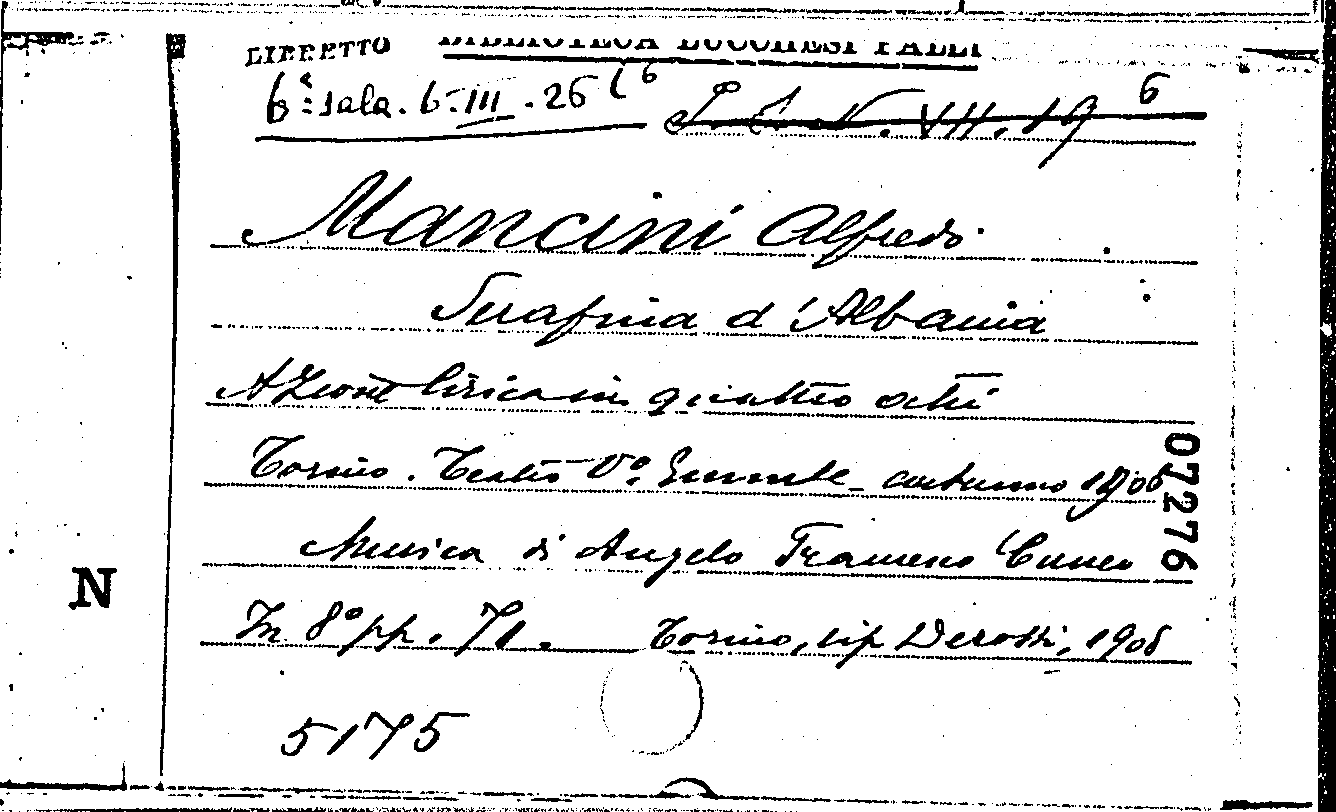 LIBRETTO BIBLIOTECA LUCCHESI PALLI
6ª sala. 6. III. 26 (6
VII. 19 6
Mancini Alfredo
Serafina d'Albania
Azione lirica in quattro atti
Torino. Teatro Vº. Emanle - autunno 1908
Musica di Angelo Cuneo
In 8º pp. 71. Torino, tip Derossi, 1908
5175
07276
N